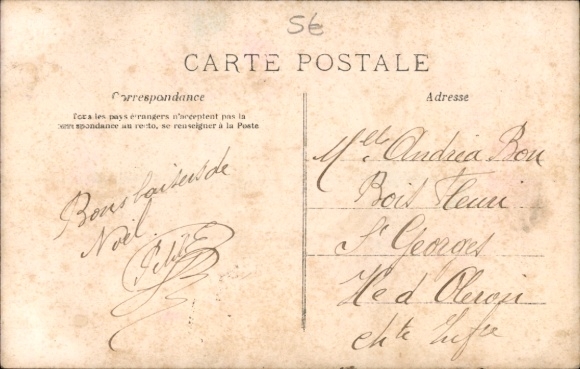 5€
CARTE POSTALE
Correspondance
Tous les pays étrangers n'acceptent pas la
correspondance au recto, se renseigner à la Poste
Bons baisers de
Noël
Adresse
Melle Andréa Bon
Bois Fleuri
St Georges
Ile d Oleron
chte Infre